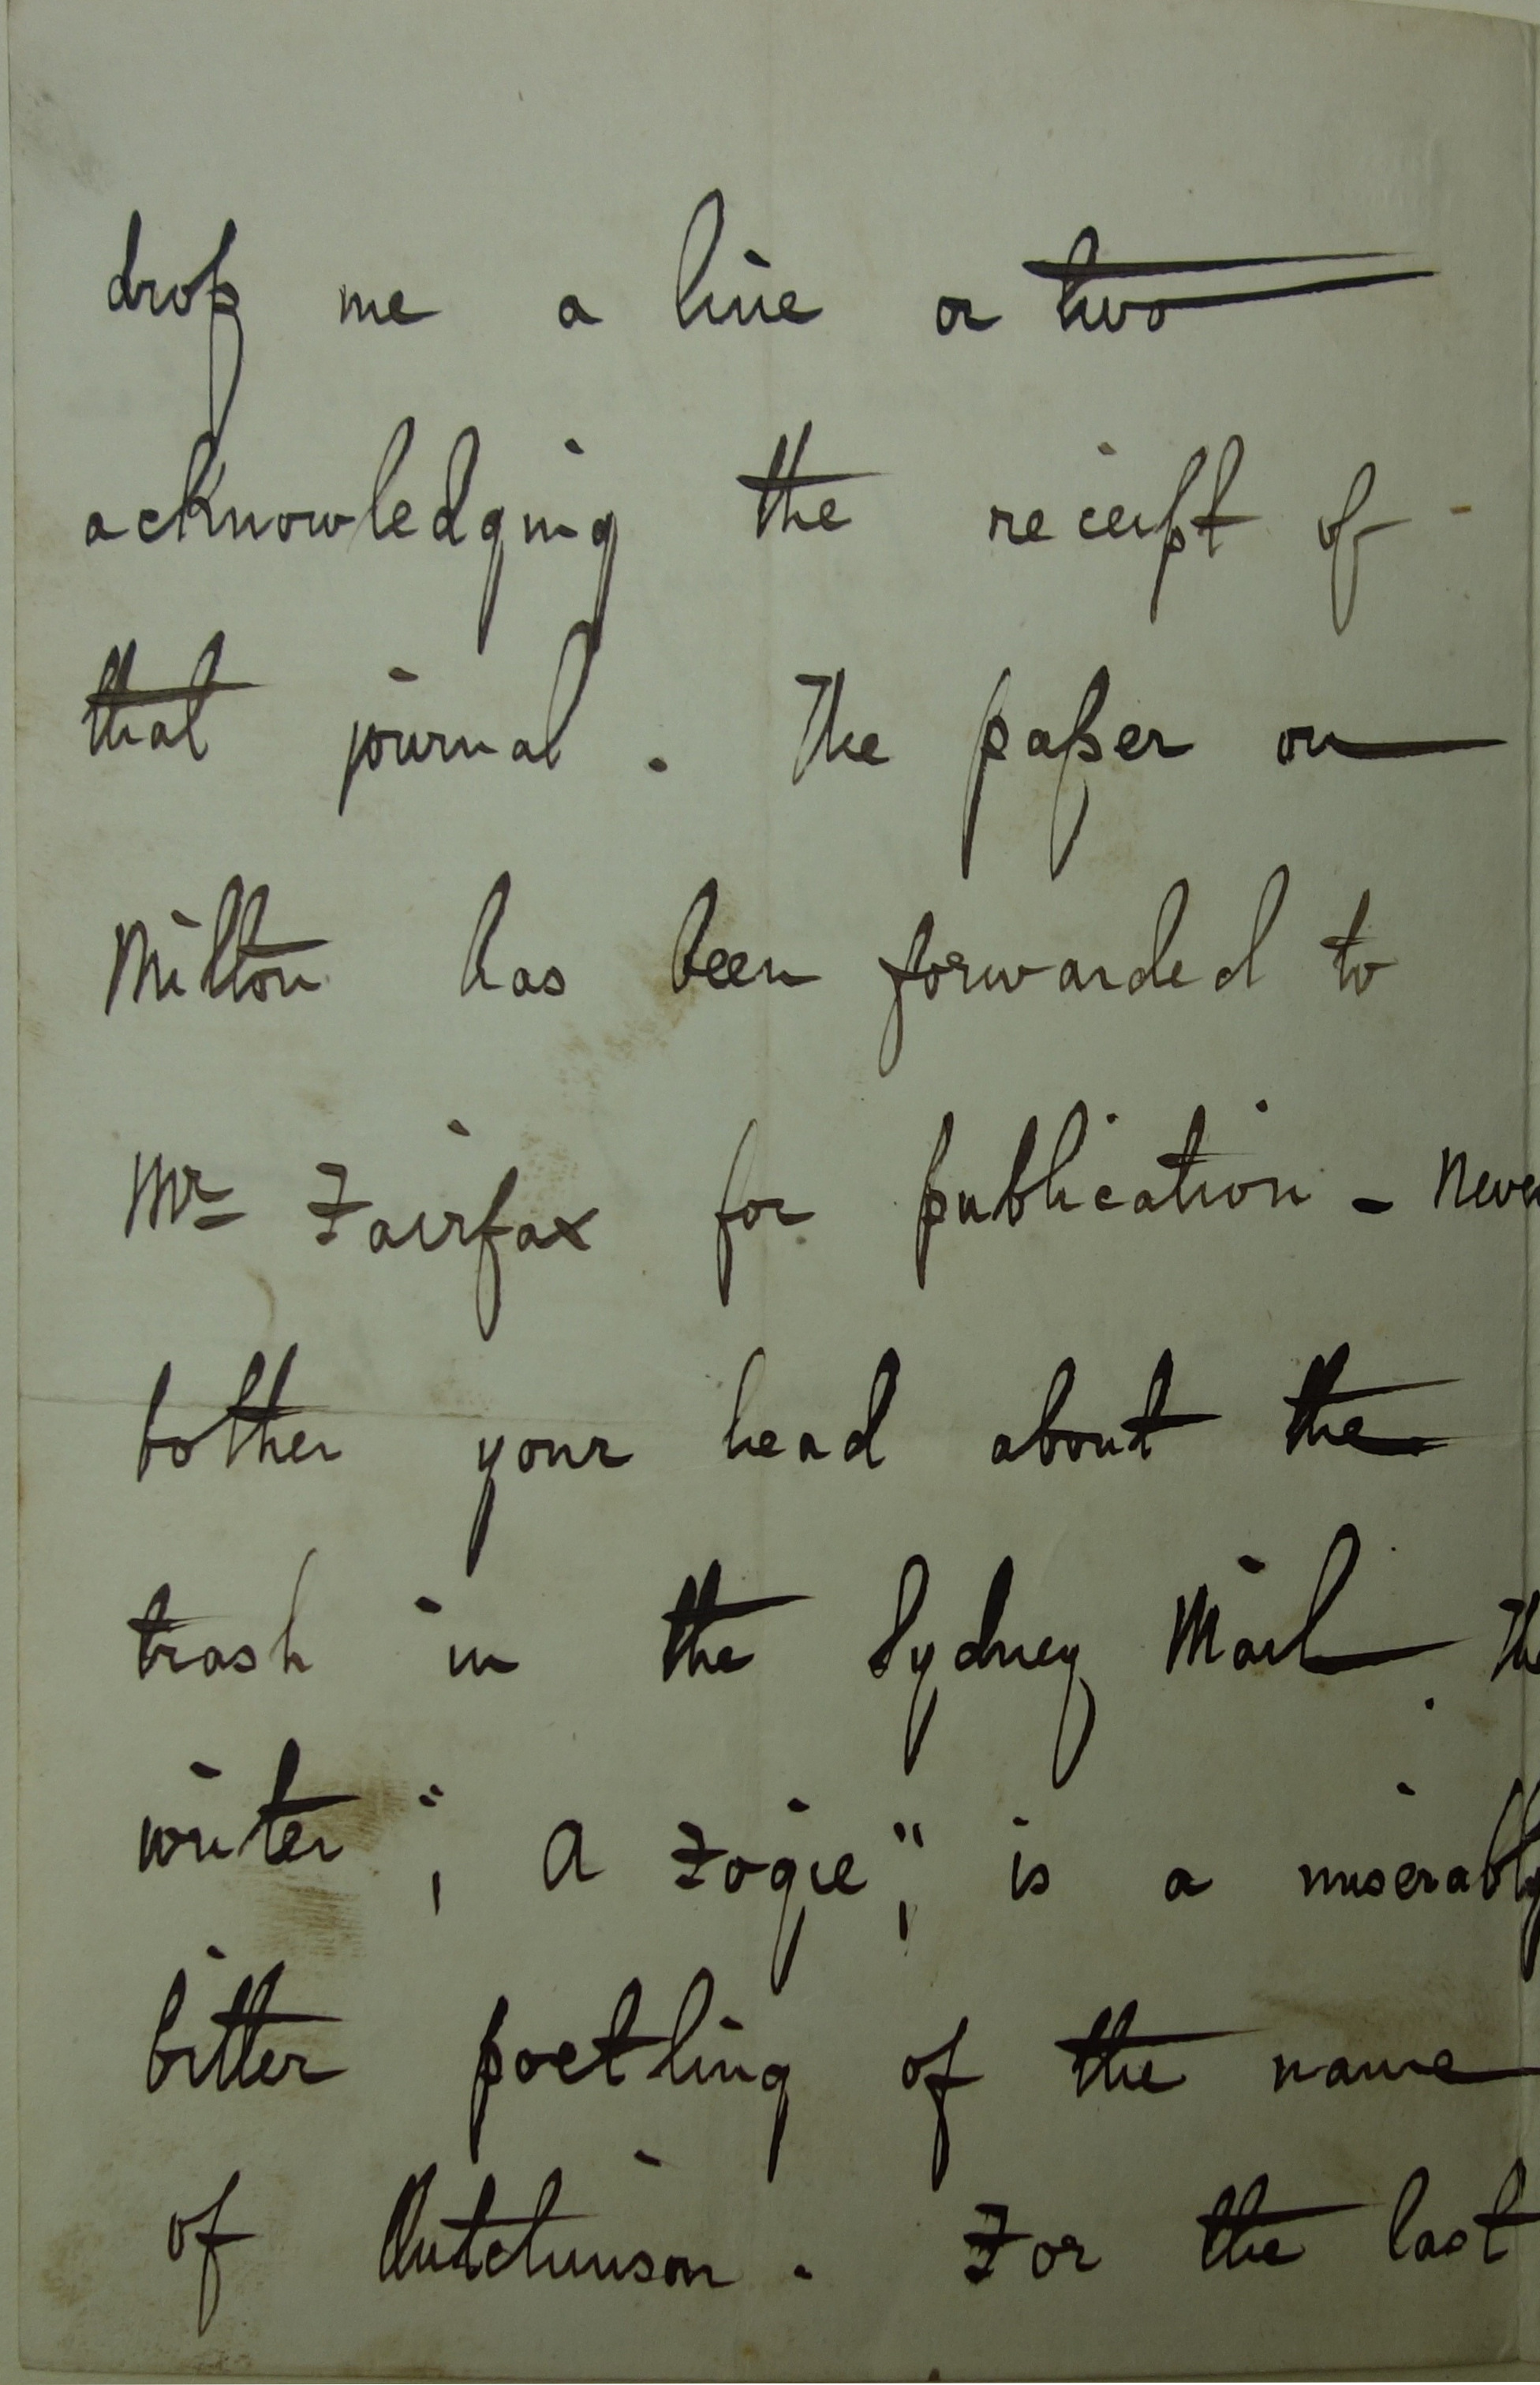 drop me a line or two
acknowledging the receipt of
that journal. The paper on
Milton has been forwarded to
Mr Fairfax for publication - Never
bother your head about the
trash in the Sydney Mail. The
writer, "A Fogie", is a miserably
bitter poetling of the name
of Hutchinson. For the last